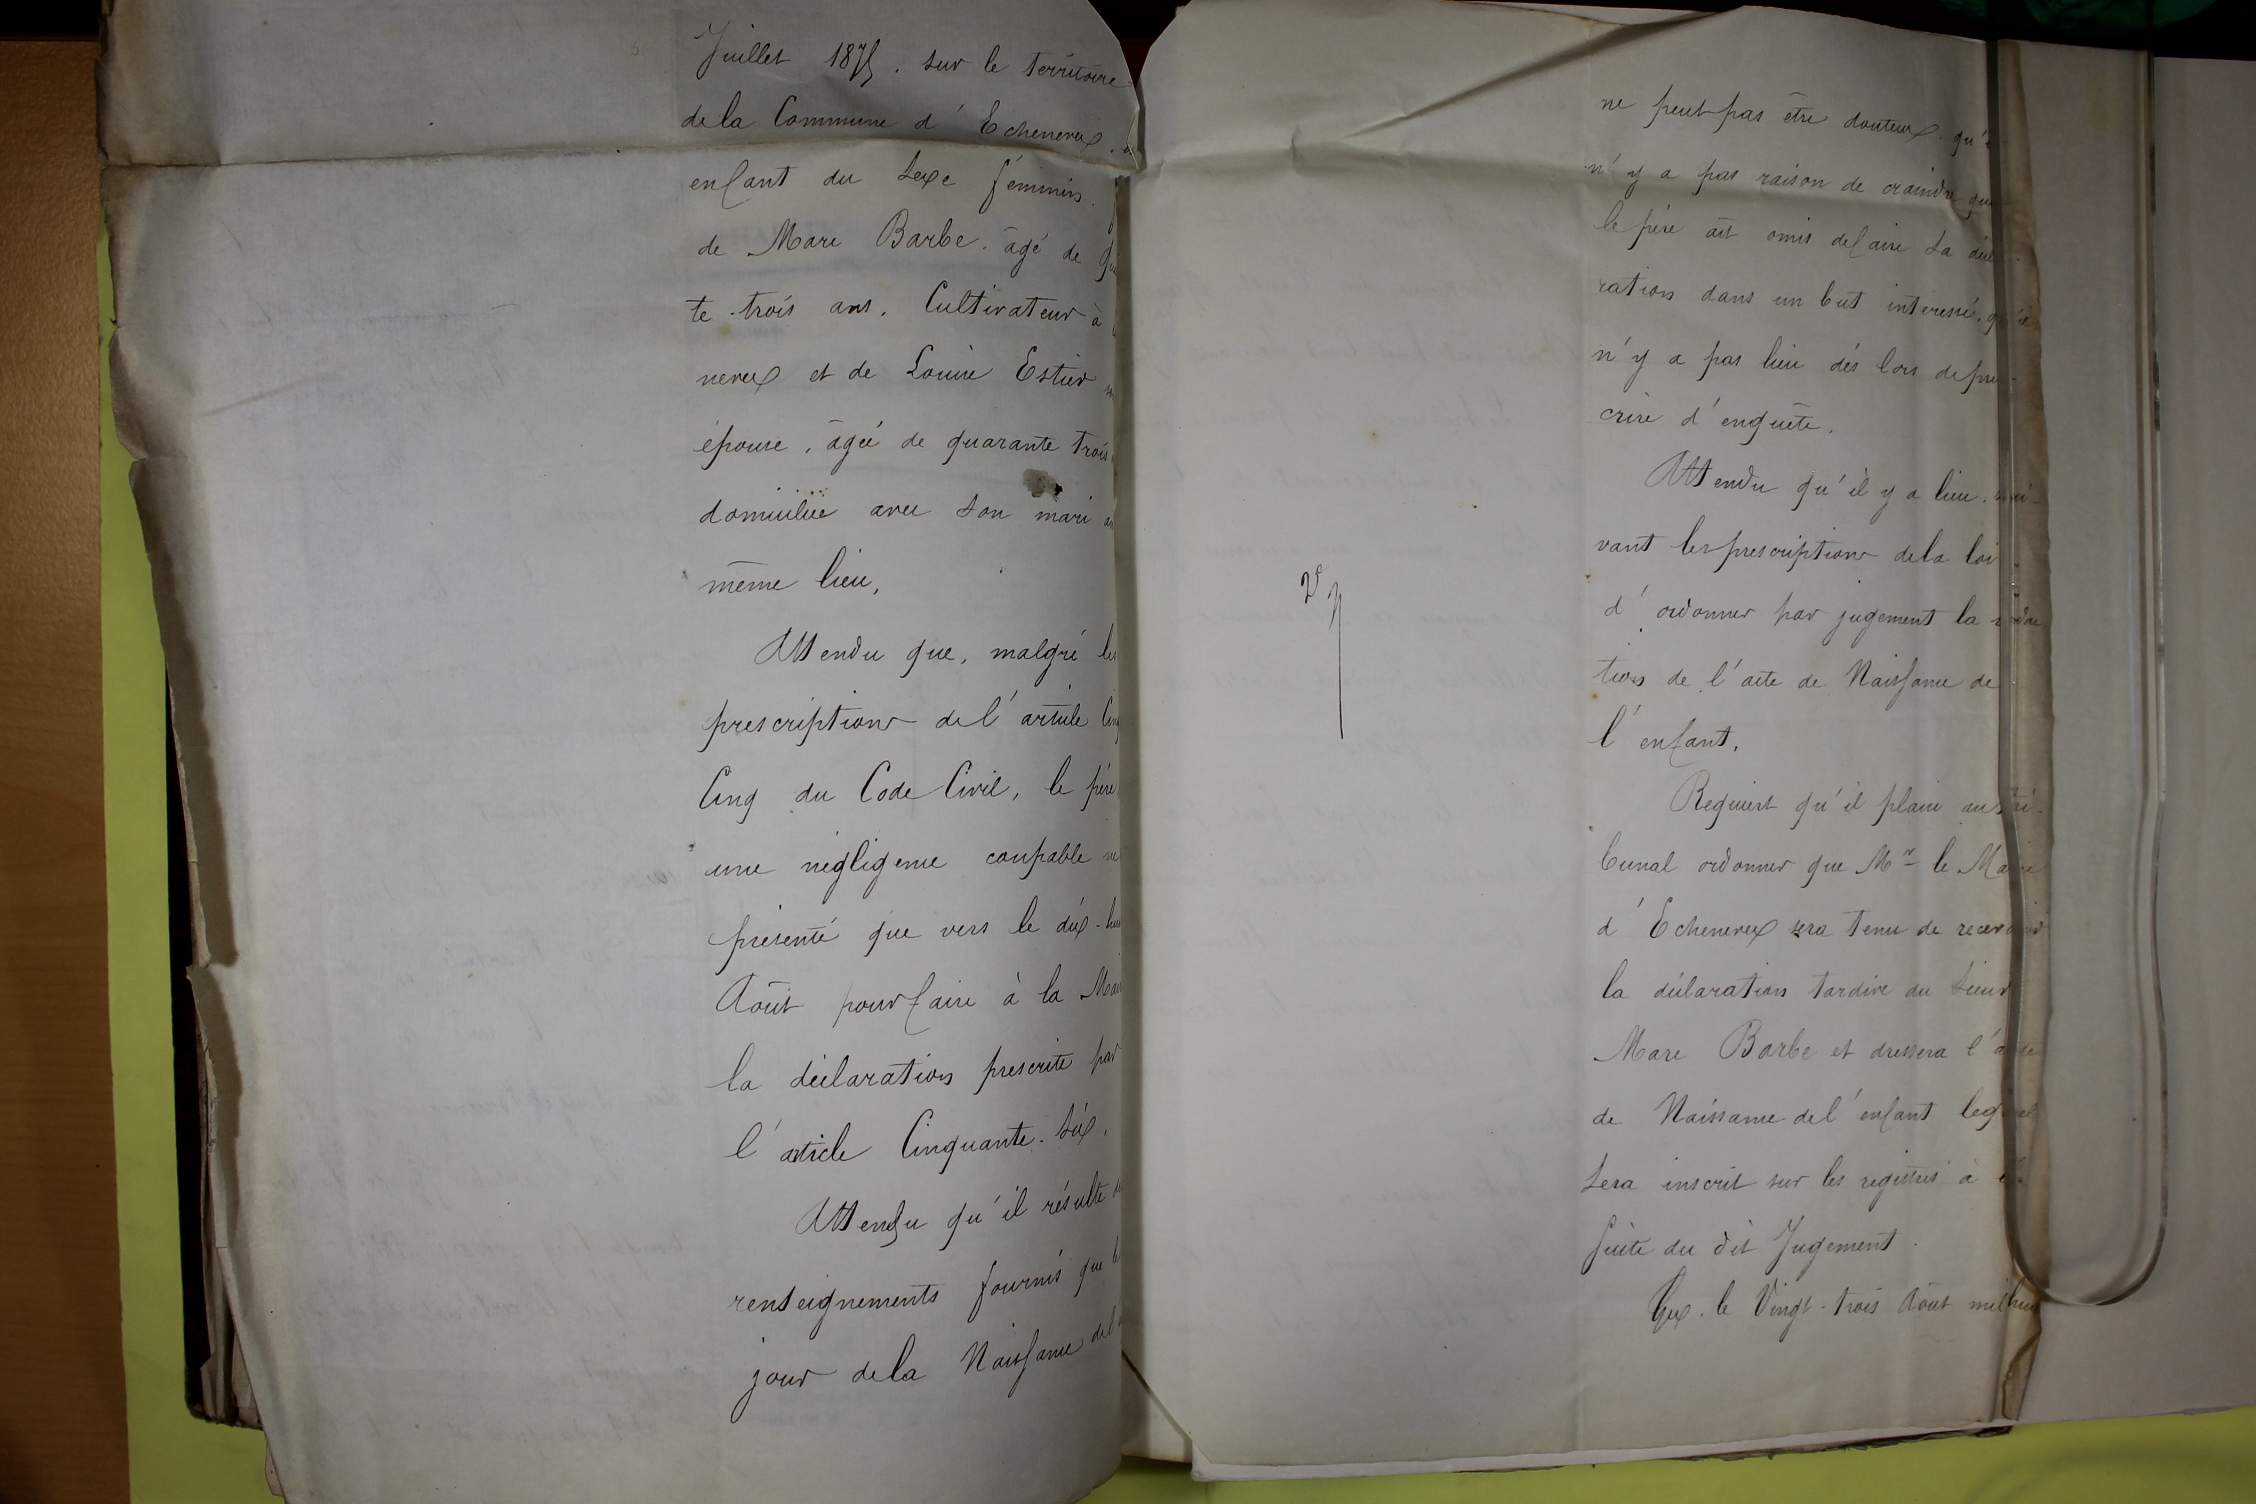 Juillet 1875. sur le territoire
de la Commune d'Echenevex.
enfant du sexe féminin.
de Marc Barbe. âgé de
te-trois ans, Cultivateur à
nevex et de Louise Estier
épouse, âgée de quarante trois
domiciliée avec son mari
même lieu,
Attendu que, malgré les
prescriptions de l'article
Cinq du Code Civil, le père
une négligence coupable
présenté que vers le dix-
Août pour faire à la
la déclaration prescrite par
l'article Cinquante-six,
Attendu qu'il résulte
renseignements fournis que
jour de la Naissance de
ne peut pas être douteux. qu'
n'y a pas raison de craindre que
le père ait omis de faire sa décl
ration dans un but intéressé, qu'il
n'y a pas lieu dès lors de pres-
crire d'enquête.
Attendu qu'il y a lieu. sui-
vant les prescriptions de la loi
d'ordonner par jugement la rédac
tion de l'acte de Naissance de
l'enfant,
Requiert qu'il plaise au tri-
bunal ordonner que Mr le Maire
d'Echenevex sera tenu de recevoir
la déclaration tardive du Sieur
Marc Barbe et dressera l'acte
de Naissance de l'enfant lequel
sera inscrit sur les registres à la
suite du dit Jugement.
Gex. le Vingt-trois Août mil huit